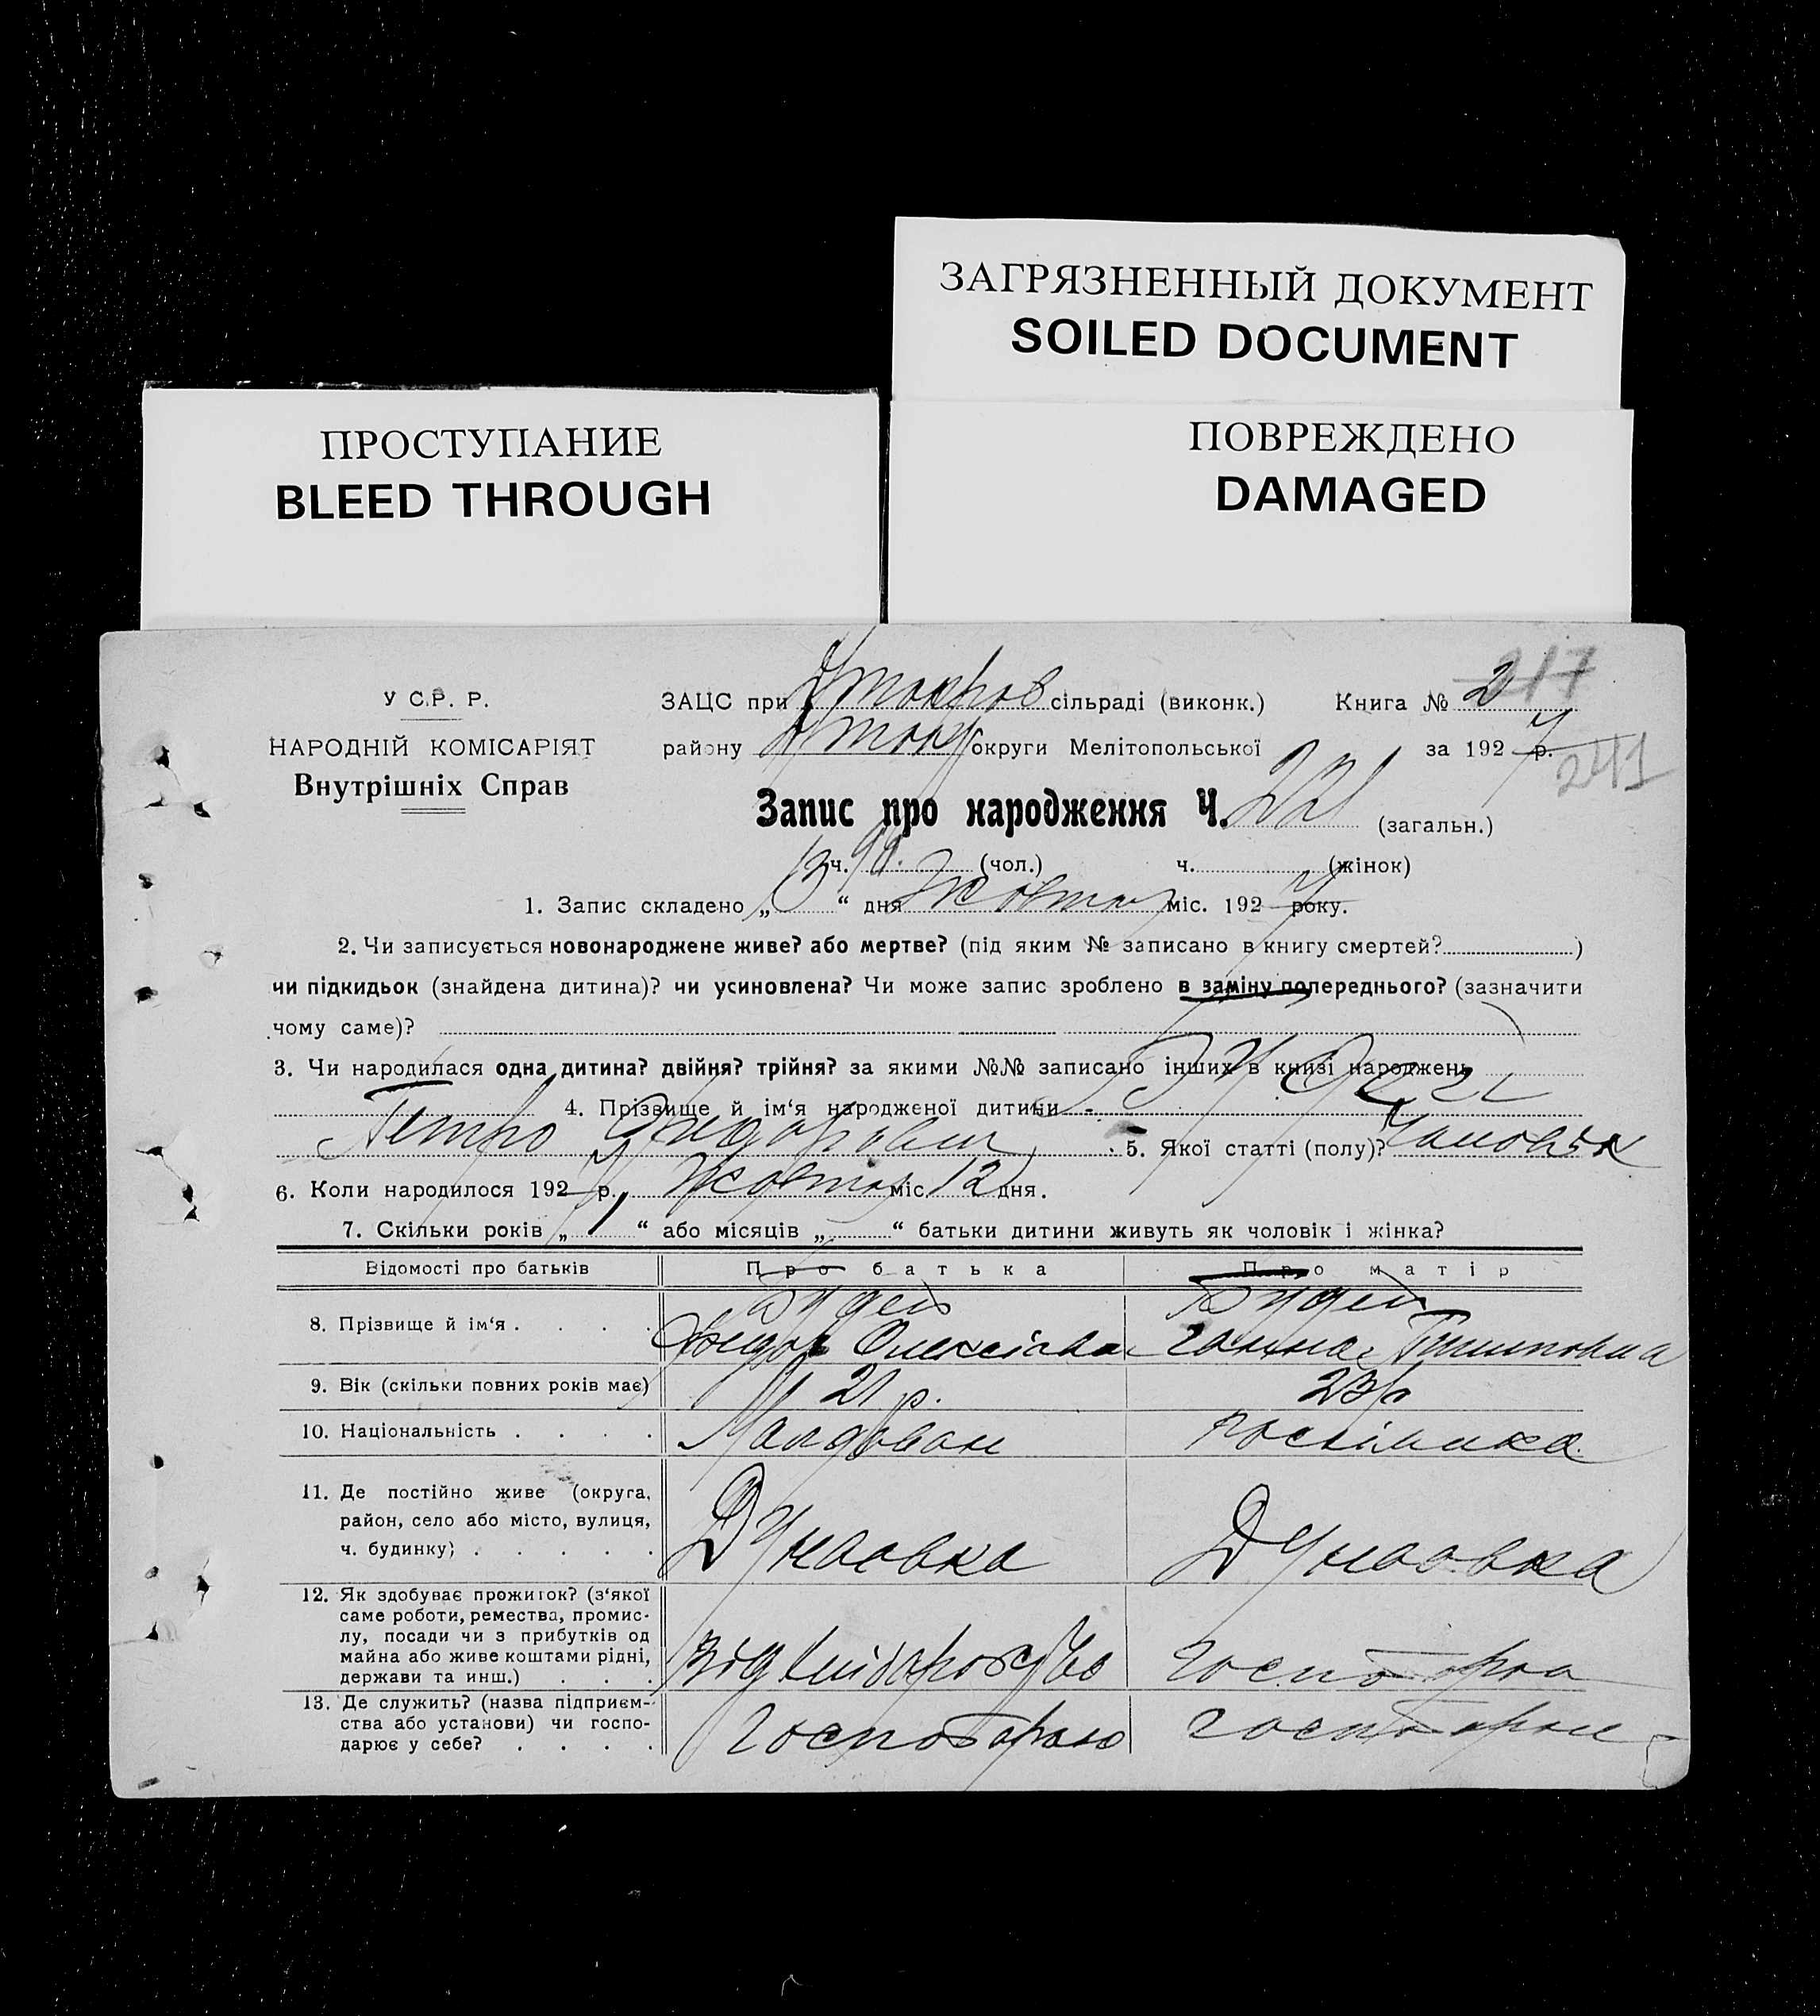 ЗАГРЯЗНЕННЫЙ ДОКУМЕНТ
SOILED DOCUMENT
ПРОСТУПАНИЕ
BLEED THROUGH
ПОВРЕЖДЕНО
DAMAGED
217
241
У С.Р. Р.
НАРОДНІЙ КОМІСАРІЯТ
Внутрішніх Справ
ЗАЦС при сільраді (виконк.) Книга № 2
району округи Мелітопольської за 1927 р.
Запис про народження Ч. 221 (загальн.)
ч. (чол.) ч. (жінок)
1. Запис складено „13“ дня жовтня міс. 1927 року.
2. Чи записується новонароджене живе? або мертве? (під яким № записано в книгу смертей? )
чи підкидьок (знайдена дитина)? чи усиновлена? Чи може запис зроблено в заміну попереднього? (зазначити
чому саме)?
3. Чи народилася одна дитина? двійня? трійня? за якими №№ записано інших в книзі народжень
4. Прізвище й ім‘я народженої дитини
Петро 5. Якої статті (полу)? Чоловік
6. Коли народилося 1927 р. жовтня міс 12 дня.
7. Скільки років „1“ або місяців „ “ батьки дитини живуть як чоловік і жінка?
Відомості про батьків Про батька Про матір
8. Прізвище й ім‘я . . . . Олексієва Ганна
9. Вік (скільки повних років має) 21 р. 23 р
10. Національність . . . . Молдован росіянка
11. Де постійно живе (округа,
район, село або місто, вулиця,
ч. будинку) . . . . . Дунаовка Дунаовка
12. Як здобуває прожиток? (з‘якої
саме роботи, ремества, промис-
лу, посади чи з прибутків од
майна або живе коштами рідні,
держави та инш.) . . . від
13. Де служить? (назва підприєм-
ства або установи) чи госпо-
дарює у себе? . . . .